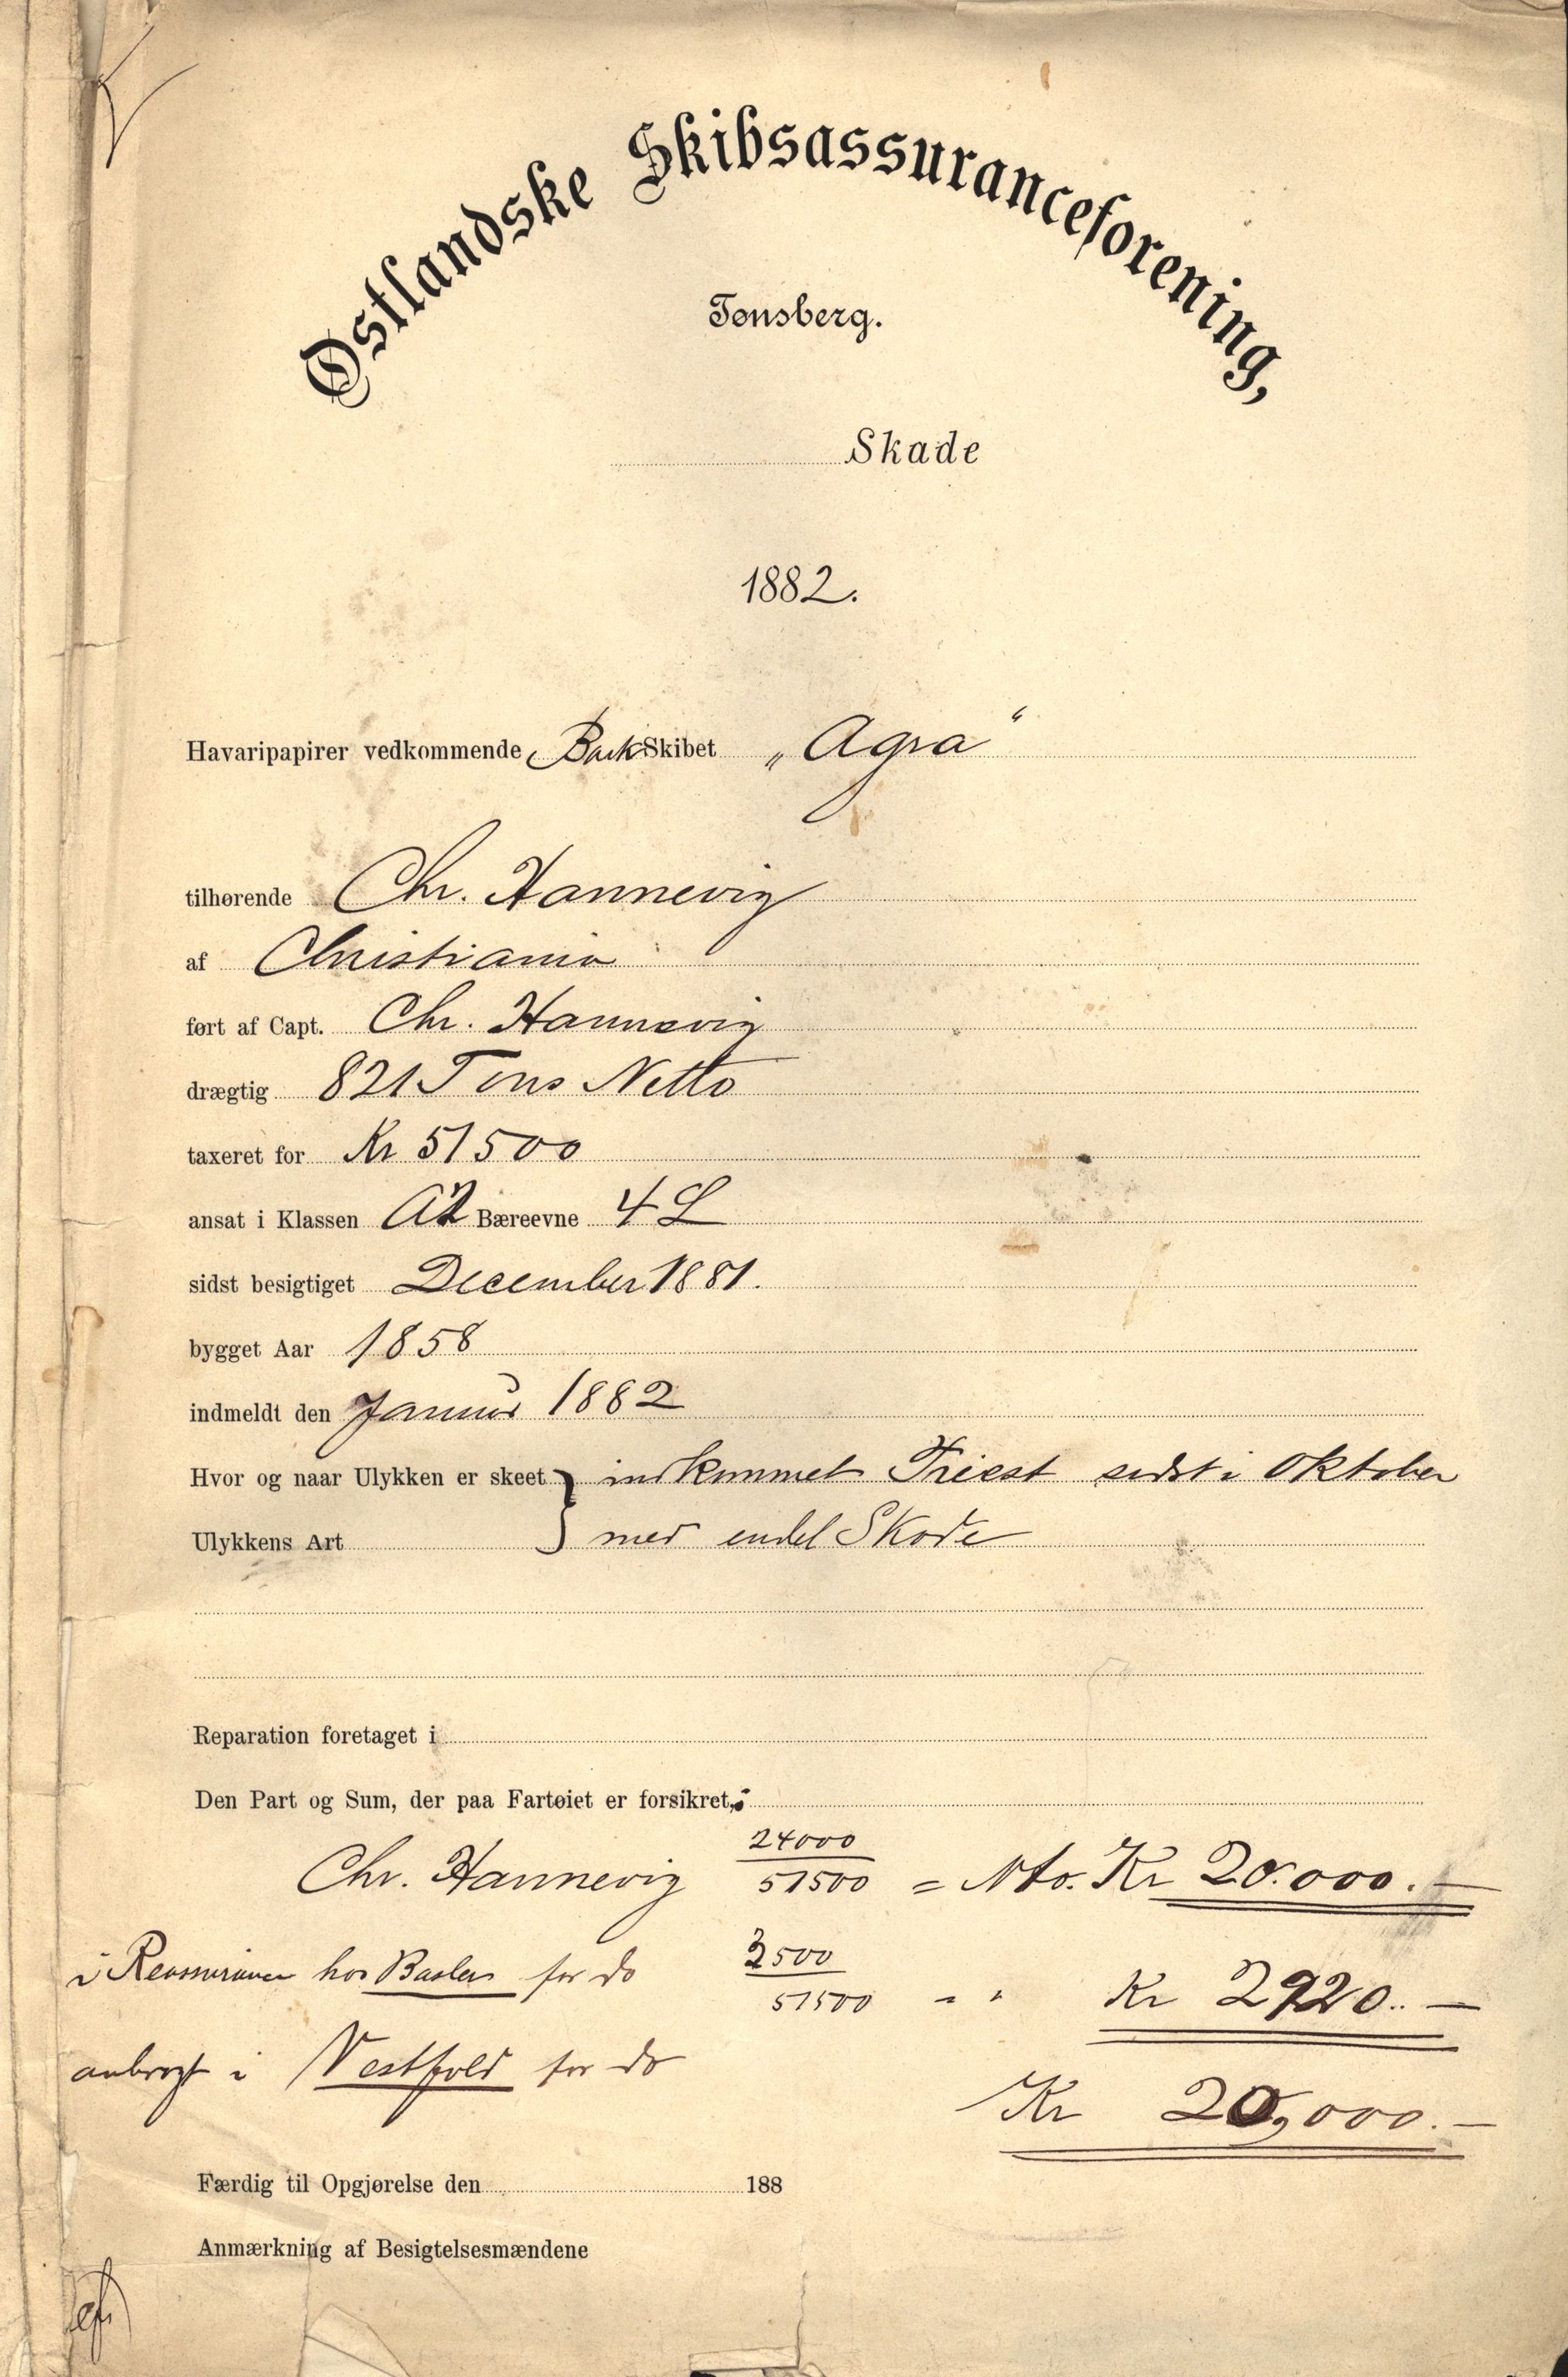 Østlandske Skibsassuranceforening,
Tønsberg.
Skade
1882.
Havaripapirer vedkommende Bark Skibet „Agra“
tilhørende Chr. Hannevig
af Christiania
ført af Capt. Chr. Hannevig
drægtig 821 Tons Netto
taxeret for Kr 51500
ansat i Klassen A2 Bæreevne 4 L
sidst besigtiget December 1881.
bygget Aar 1858
indmeldt den Januar 1882
Hvor og naar Ulykken er skeet } indkommet Triest sidst i Oktober
Ulykkens Art } med endel Skade
Reparation foretaget i
Den Part og Sum, der paa Fartøiet er forsikret,:
Chr. Hannevig 24000/51500 = Nto. Kr 20.000.—
i Reassurance hos Basler for do 3500/51500 " " Kr 2920.—
anbragt i Vestfold for do
Kr 20,000.—
Færdig til Opgjørelse den 188
Anmærkning af Besigtelsesmændene